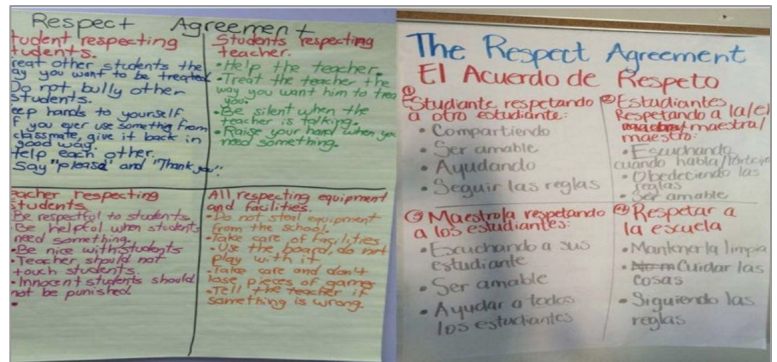 Respect Agreement
tudent respecting
tudents.
reat other students the
ay you want to be treated
Do not bully other
students.
eep hands to yourself
f you ever use something from
classmate, give it back in
good way.
Help each other.
Say "please" and "Thank you".
Students respecting
teacher.
•Help the teacher.
•Treat the teacher the
way you want him to trea
you.
•Be silent when the
teacher is talking.
•Raise your hand when you
need something.
eacher respecting
students
Be respectful to students
•Be helpful when students
need something.
•Be nice with students
•Teacher should not
touch students.
•Innocent students should
not be punished
All respecting equipment
and facilities.
•Do not steal equipment
from the school.
•Take care of facilities
•Use the board, do not
play with it
•Take care and don't
lose pieces of games
•Tell the teacher if
something is wrong.
The Respect Agreement
El Acuerdo de Respeto
① Estudiante respetando
a otro estudiante:
• Compartiendo
• Ser amable
• Ayudando
• Seguir las reglas
② Estudiantes
Respetando a la/el
maestra/
maestro:
• Escuchando
cuando habla/participa
• Obedeciendo las
reglas
• Ser amable
③ Maestro/a respetando
a los estudiantes:
• Escuchando a sus
estudiante
• Ser amable
• Ayudar a todos
los estudiantes
④ Respetar a
la escuela
• Mantenerla limpia
• Cuidar las
cosas
• Siguiendo las
reglas